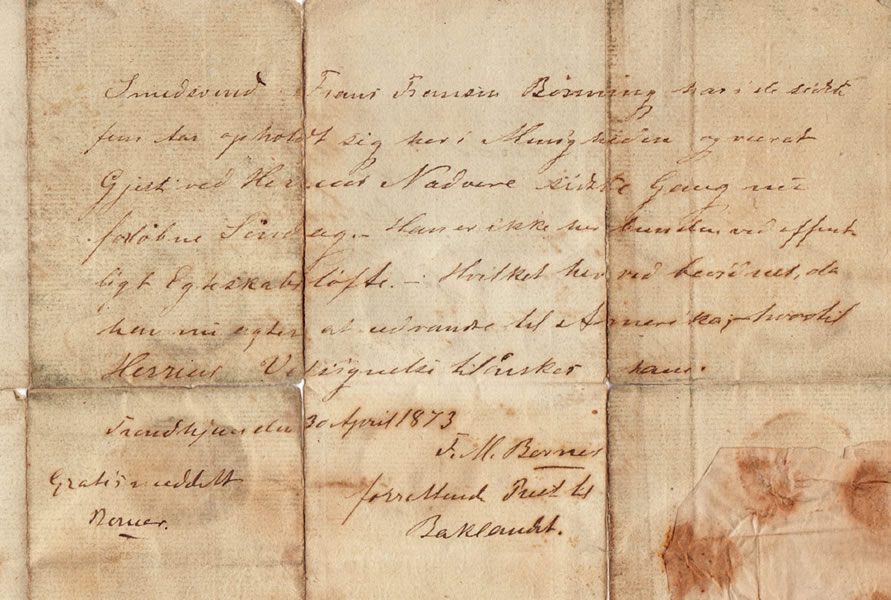 Smedsvend Frans Fransen Bönning har i de sidste
fem Aar opholdt sig her i Menigheden og været
Gjest ved Herrens Nadvere sidste Gang nu
forløbne Søndag. – Han er ikke her bunden ved offent-
ligt Egteskabsløfte. – Hvilket herved bevidnes, da
han nu agter at udvandre til Amerika, hvortil
Herrens Velsignelse tilønskes ham.
Trondhjem den 30 April 1873
F. M. Borner
Gratis meddelt
forrettende Prest til
Borner.
Baklandet.